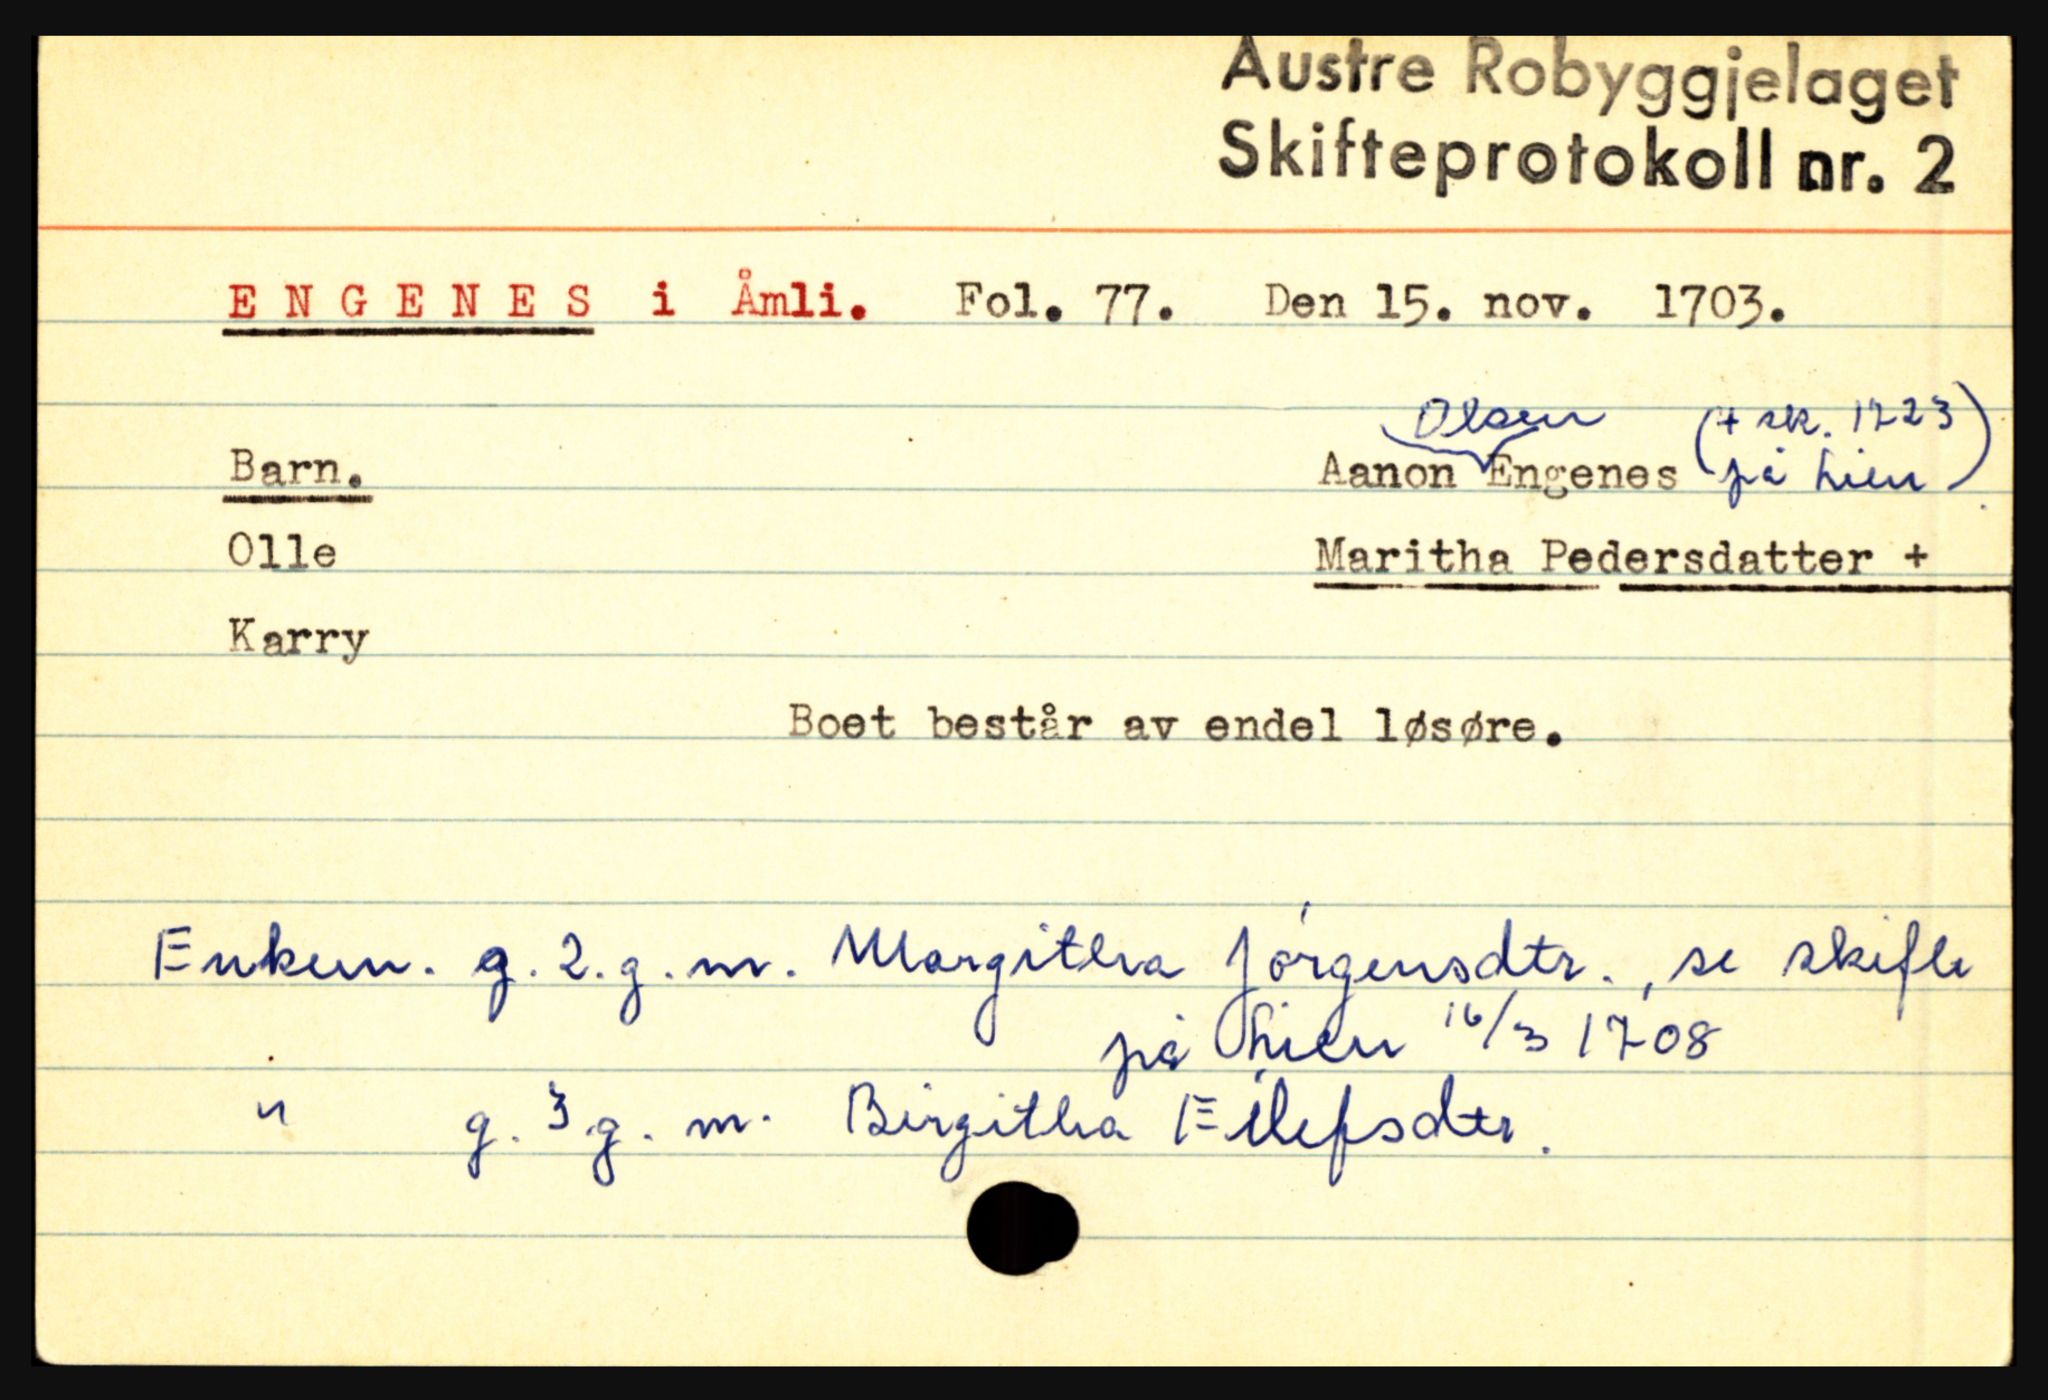 Austre Robyggjelaget
Skifteprotokoll nr. 2
ENGENES i Åmli. Fol. 77. Den 15. nov. 1703.
Olsen (+ sk. 1723
Barn. Aanon Engenes på Lien)
Olle Maritha Pedersdatter +
Karry
Boet består av endel løsøre.
Enkem. g. 2. g. m. Margitha Jörgensdtr., se skifte
på Lien 16/3 1708
" g. 3 g. m. Birgitha Eilefsdtr.